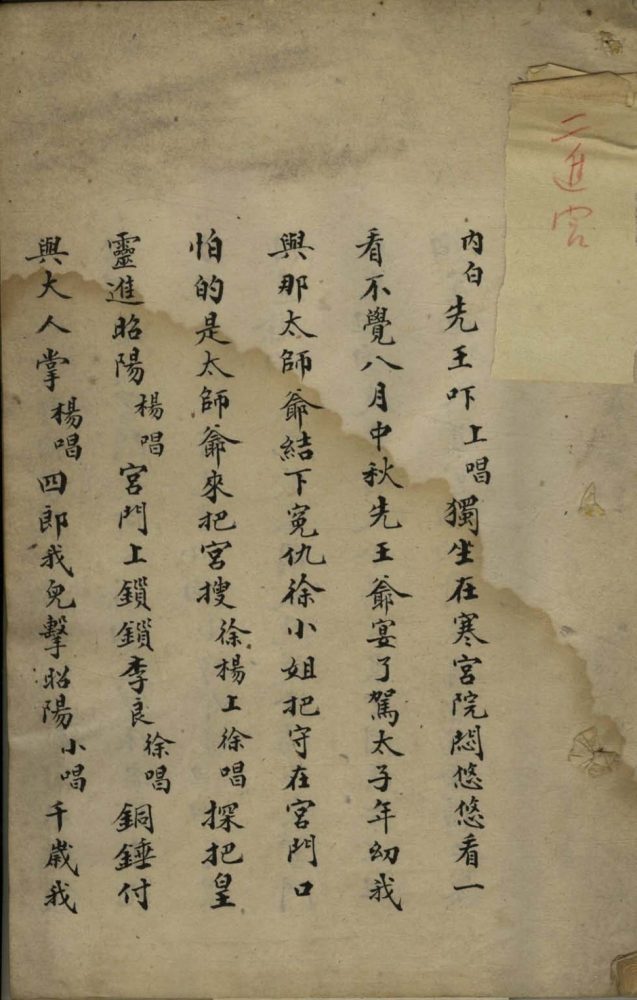 二進宮
內白先王吓上唱獨坐在寒宮院悶悠悠看一
看不覺八月中秋先王爺宴了駕太子年幼我
與那太師爺結下冤仇徐小姐把守在宮門口
怕的是太師爺來把宮搜徐楊上徐唱探把皇
靈進昭陽楊唱宮門上鎖鎖李良徐唱銅錘付
與大人掌楊唱四郎我兒擊昭陽小唱千歲我